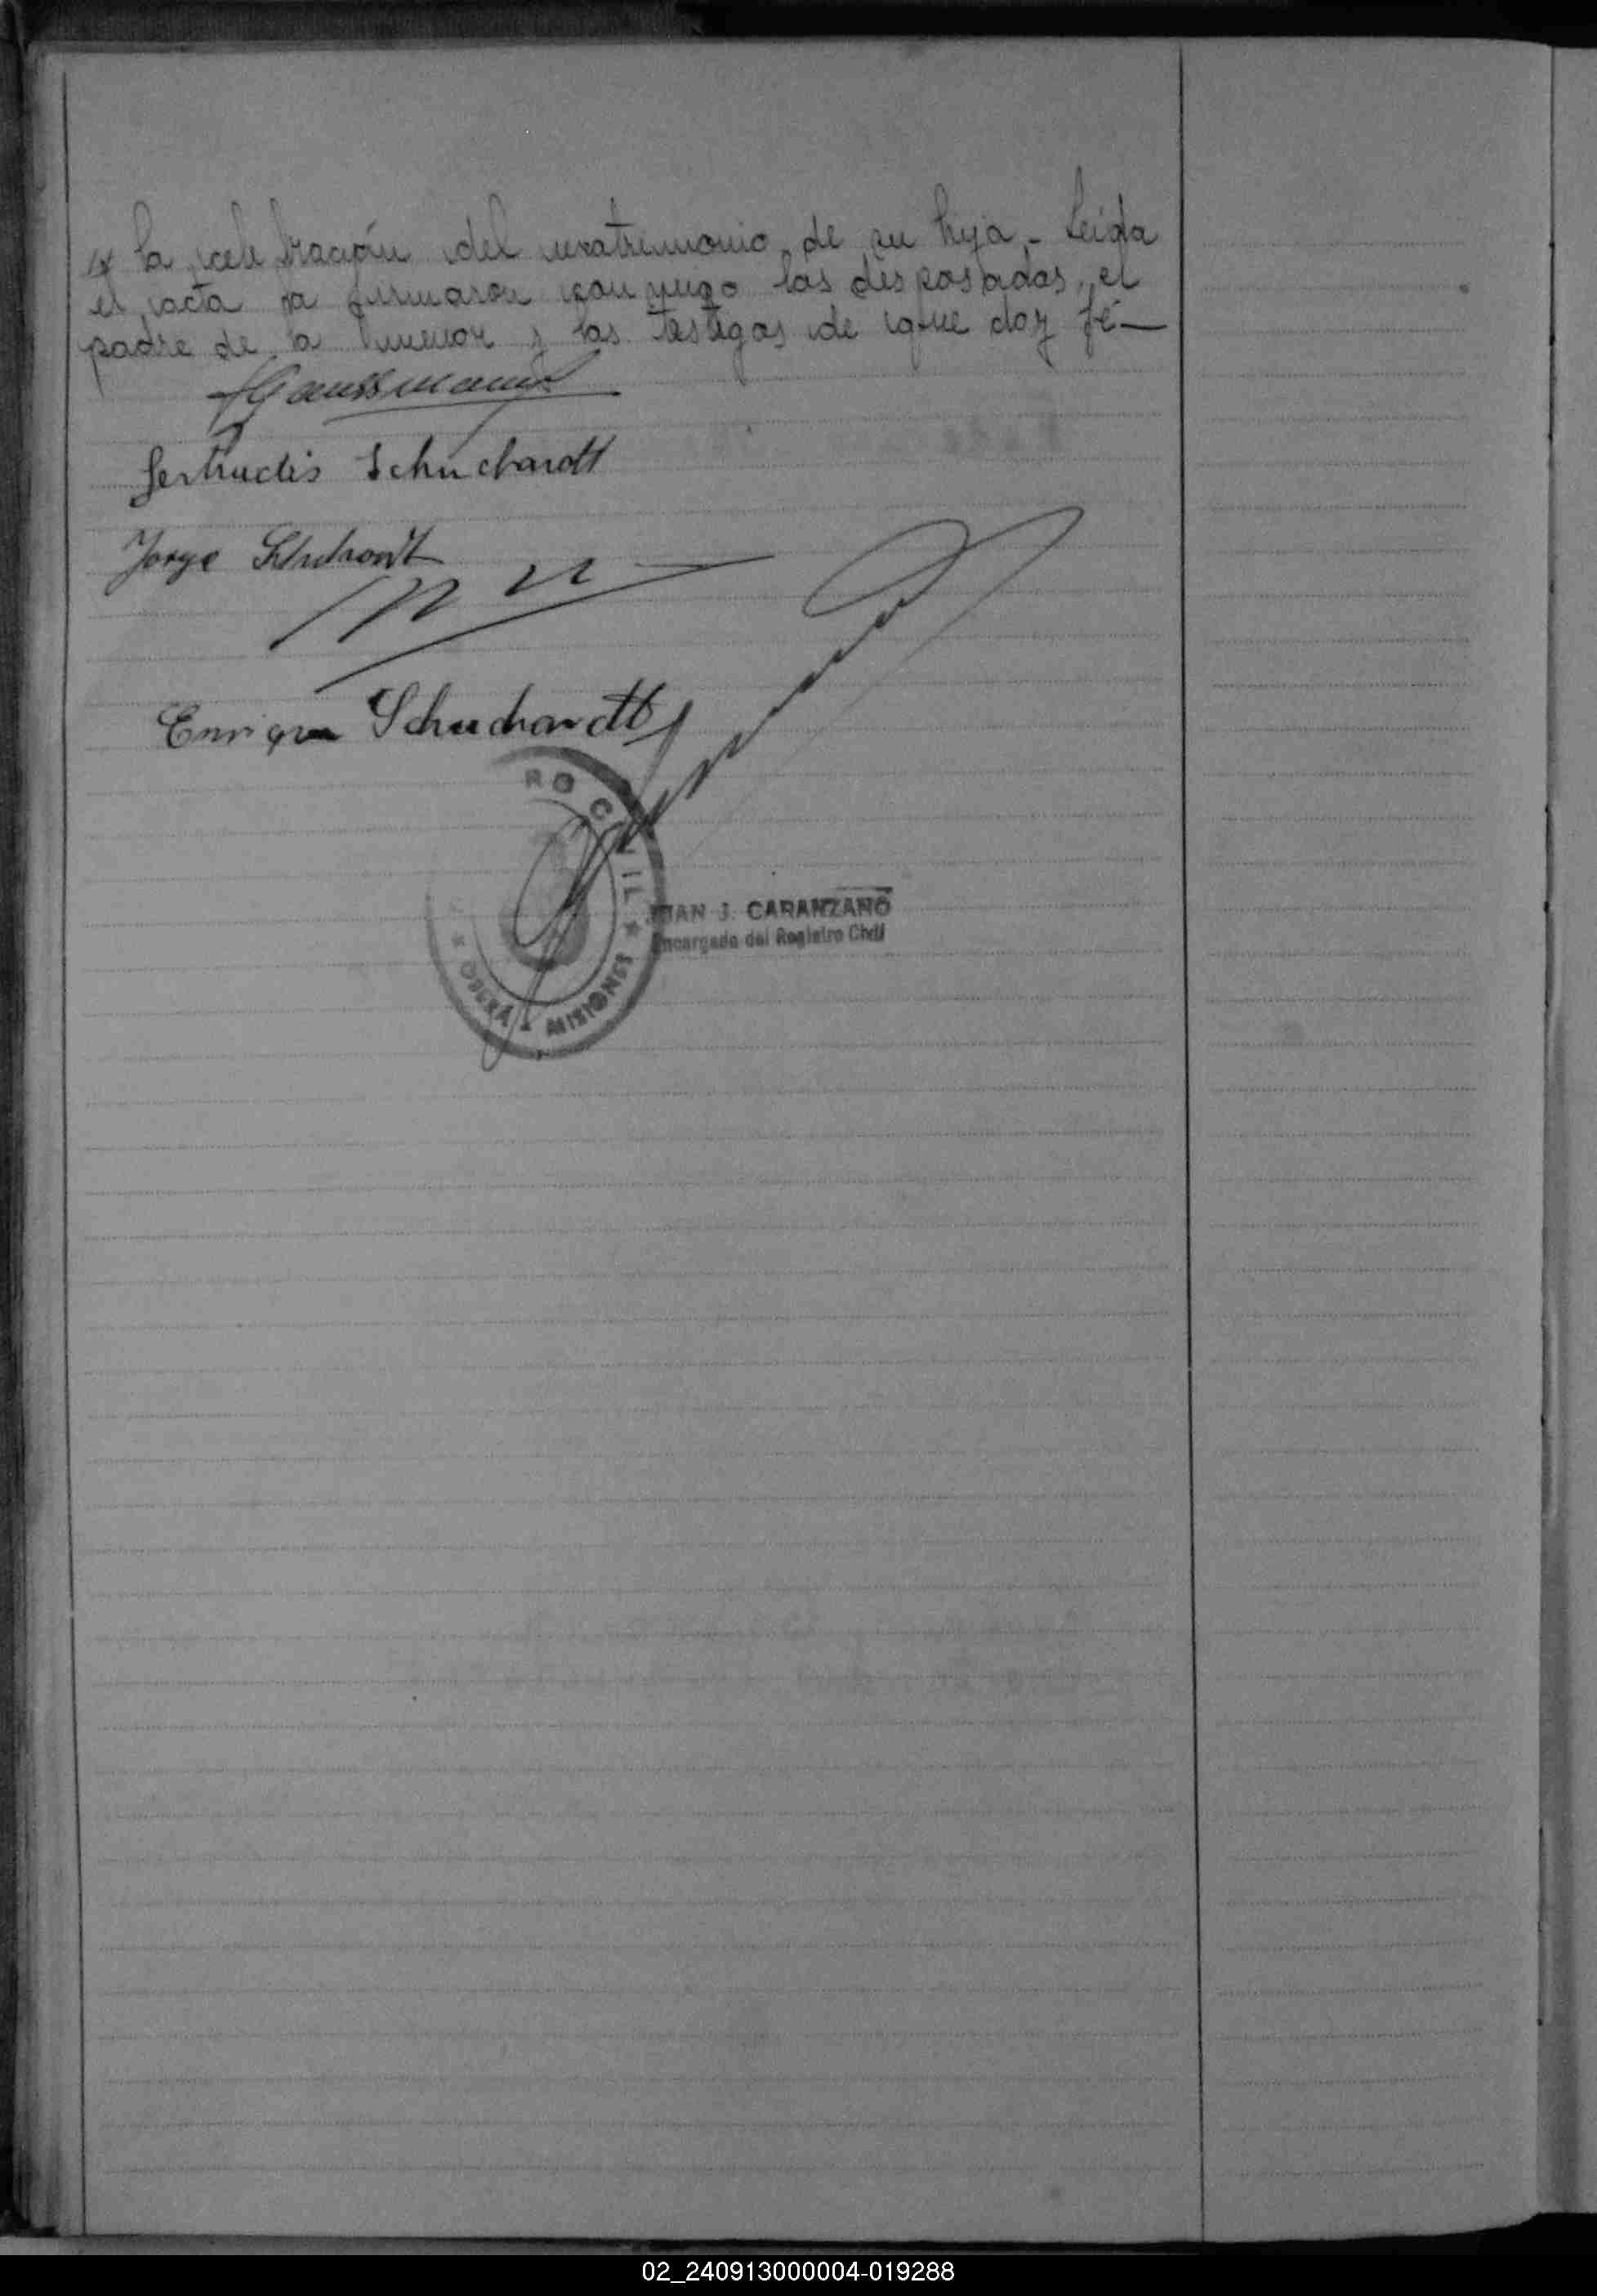 la celebración del matrimonio de su hija.- Leída
el acta la firmaron conmigo los desposados, el
padre de la menor y los testigos de que doy fé—
Gertrudis Schuchardt
Jorge
Enrique Schuchardt
RO CIVIL
JUAN J. CARANZANO
Encargado del Registro Civil
OBERÁ - MISIONES
02_240913000004-019288